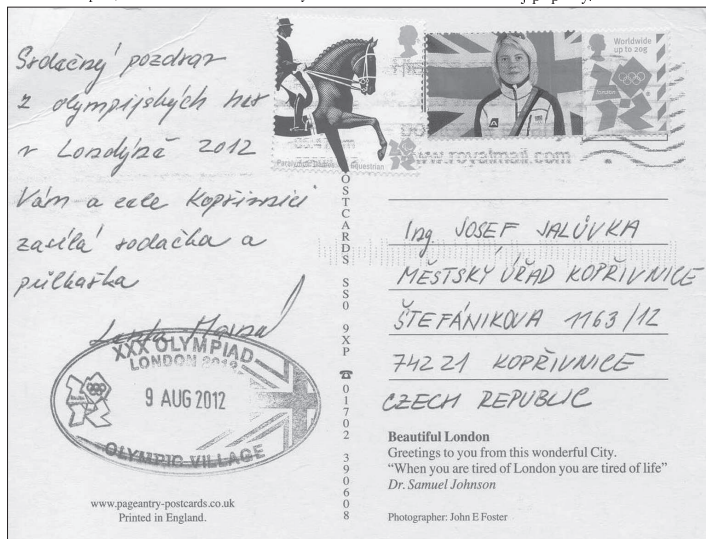 Srdečný pozdrav
z olympijských her
v Londýně 2012
Vám a celé Kopřivnici
zasílá rodačka a
půlkařka
XXX OLYMPIAD
LONDON 2012
9 AUG 2012
OLYMPIC VILLAGE
www.pageantry-postcards.co.uk
Printed in England.
OSTCARDS SS0 9XP ☎ 01702 390608
Paralympic Games Equestrian
Worldwide
up to 20g
www.royalmail.com
Ing. JOSEF JALŮVKA
MĚSTSKÝ ÚŘAD KOPŘIVNICE
ŠTEFÁNIKOVA 1163/12
742 21 KOPŘIVNICE
CZECH REPUBLIC
Beautiful London
Greetings to you from this wonderful City.
"When you are tired of London you are tired of life"
Dr. Samuel Johnson
Photographer: John E Foster